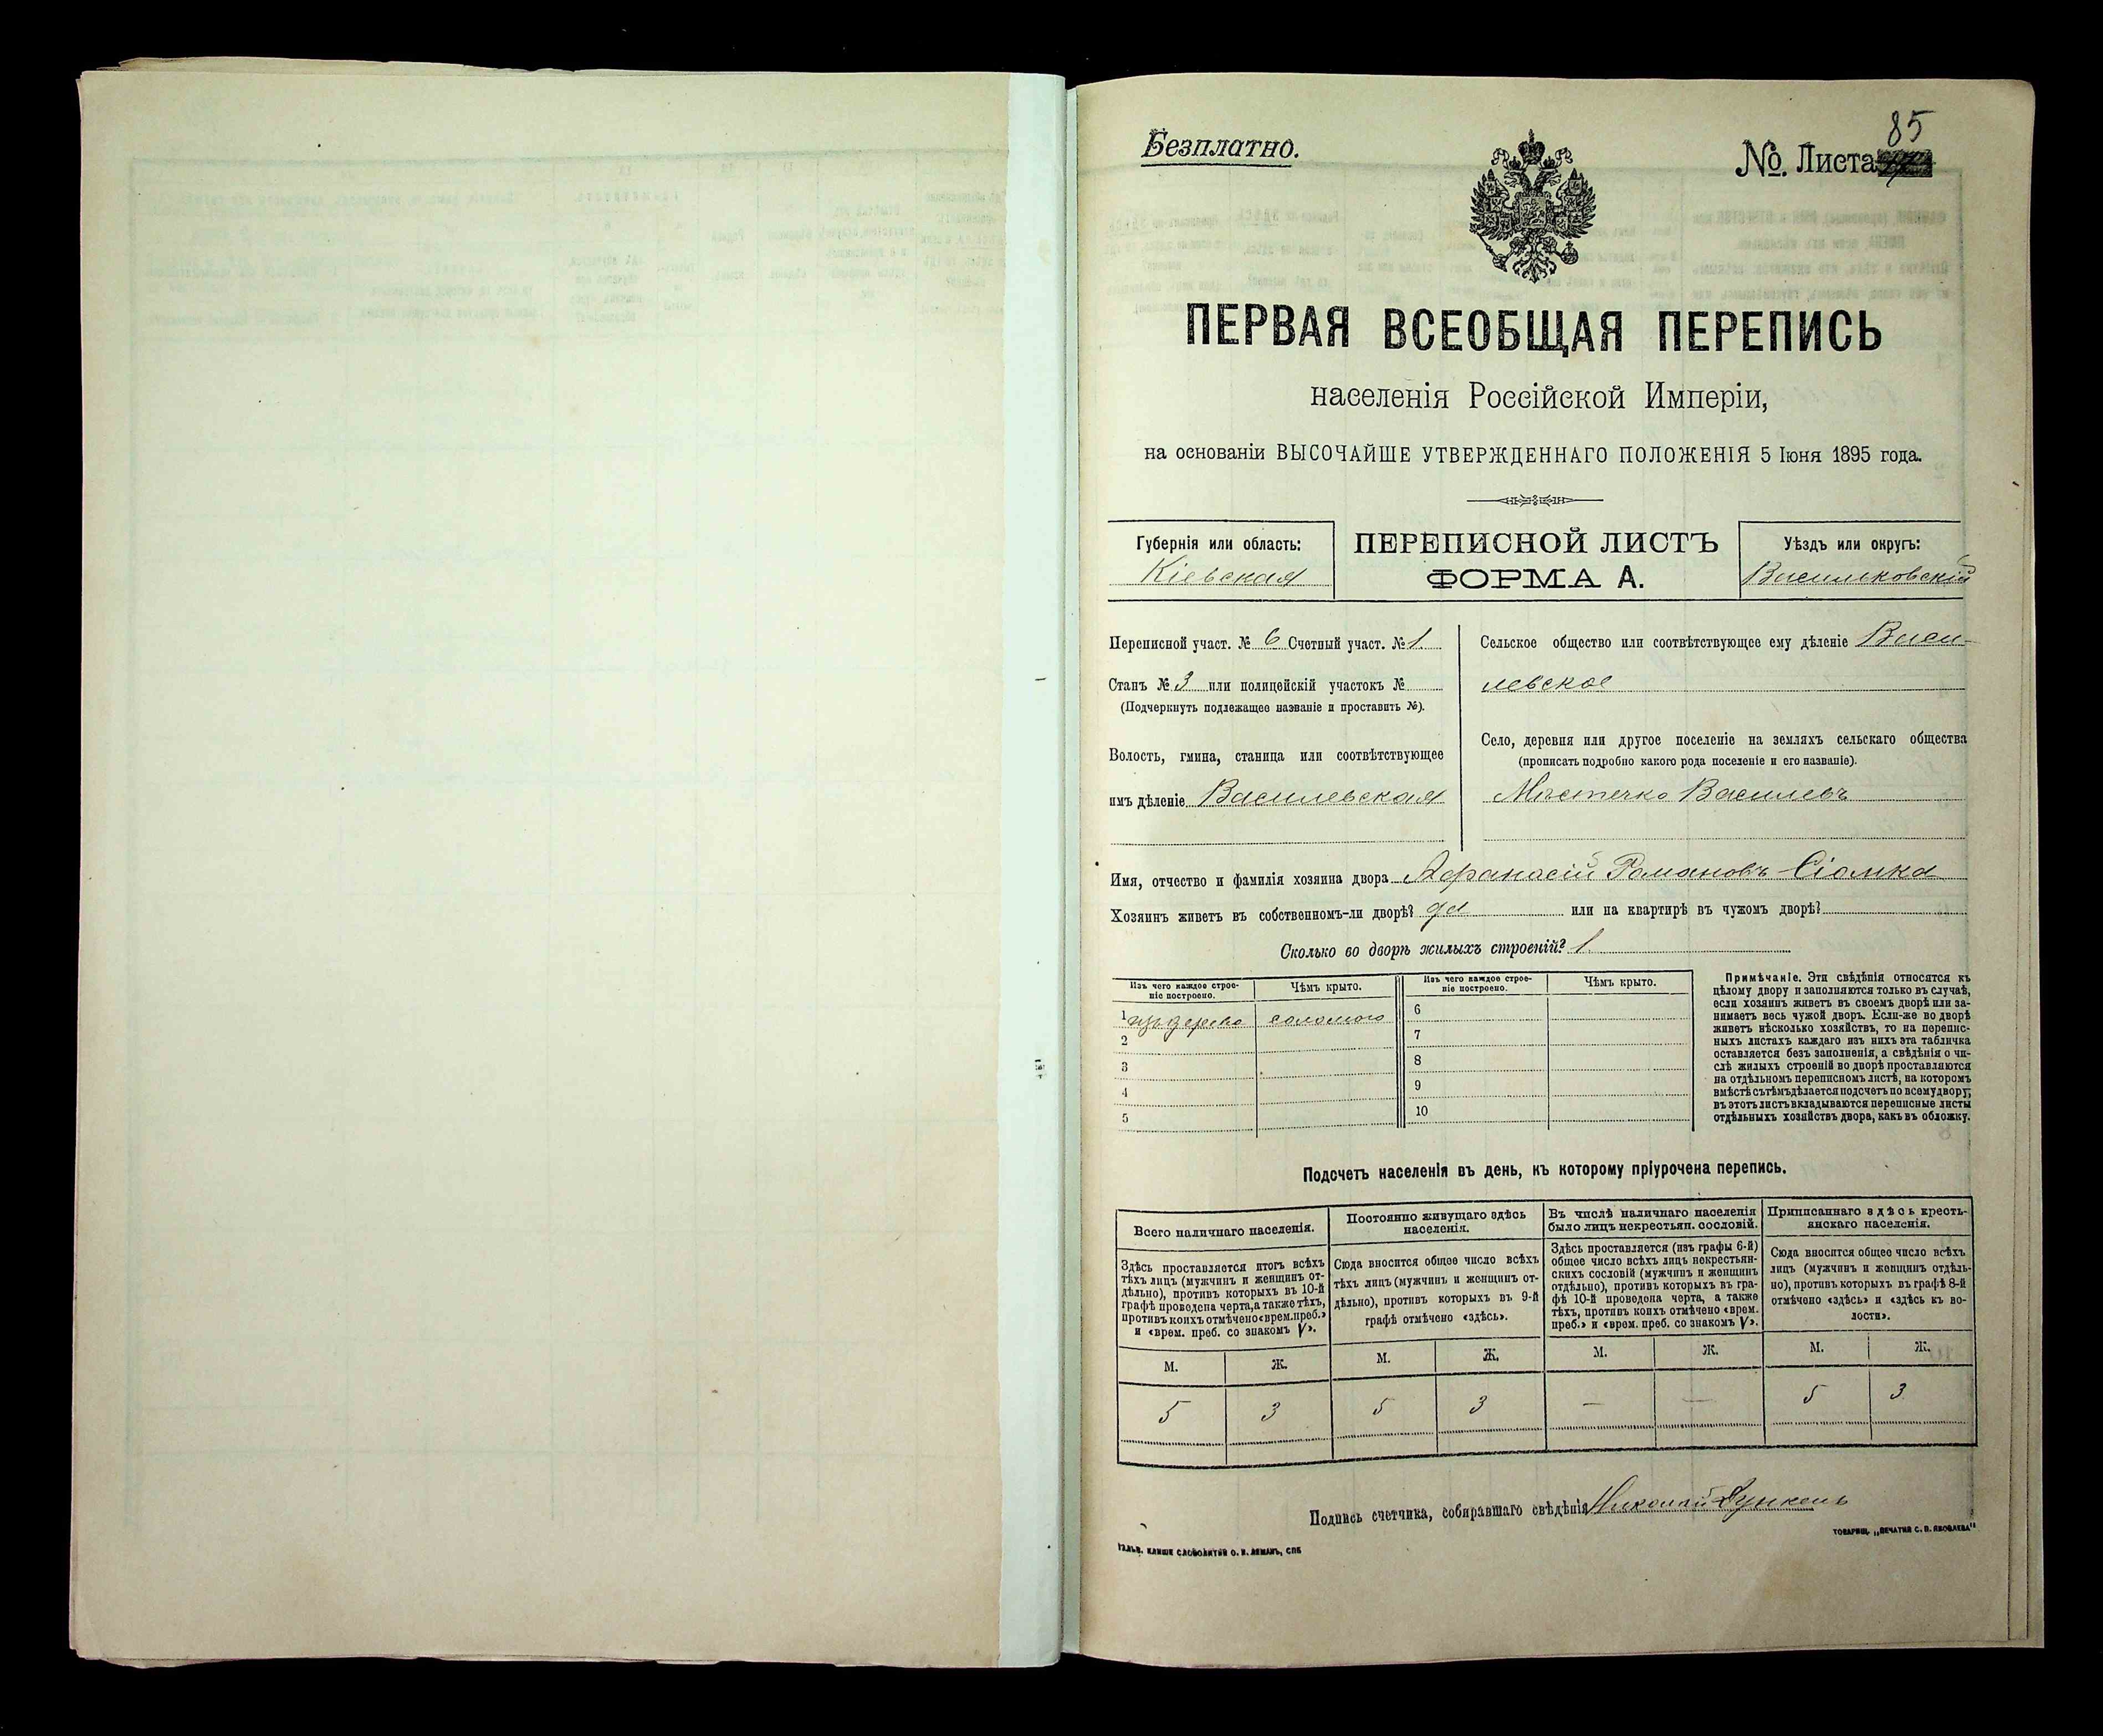 Безплатно.
85
№. Листа
ПЕРВАЯ ВСЕОБЩАЯ ПЕРЕПИСЬ
населенія Россійской Имперіи,
на основаніи ВЫСОЧАЙШЕ УТВЕРЖДЕННАГО ПОЛОЖЕНІЯ 5 Іюня 1895 года.
Губернія или область:
Кіевская
ПЕРЕПИСНОЙ ЛИСТЪ
ФОРМА А.
Уѣздъ или округъ:
Васильковскій
Переписной участ. № 6 Счетный участ. № 1
Станъ № 3 или полицейскій участокъ №
(Подчеркнуть подлежащее названіе и проставить №).
Волость, гмина, станица или соотвѣтствующее
имъ дѣленіе Василевская
Сельское общество или соотвѣтствующее ему дѣленіе Васи-
левское
Село, деревня или другое поселеніе на земляхъ сельскаго общества
(прописать подробно какого рода поселеніе и его названіе).
Мѣстечко Василевъ
Имя, отчество и фамилія хозяина двора Афанасій Романовъ Сіомка
Хозяинъ живетъ въ собственномъ-ли дворѣ? да или на квартирѣ въ чужомъ дворѣ?
Сколько во дворѣ жилыхъ строеній? 1
Изъ чего каждое строе-
ніе построено.
Чѣмъ крыто.
1 изъ дерева соломою
2
3
4
5
Изъ чего каждое строе-
ніе построено.
Чѣмъ крыто.
6
7
8
9
10
Примѣчаніе. Эти свѣдѣнія относятся къ
цѣлому двору и заполняются только въ случаѣ,
если хозяинъ живетъ въ своемъ дворѣ или за-
нимаетъ весь чужой дворъ. Если-же во дворѣ
живетъ нѣсколько хозяйствъ, то на перепис-
ныхъ листахъ каждаго изъ нихъ эта табличка
оставляется безъ заполненія, а свѣдѣнія о чи-
слѣ жилыхъ строеній во дворѣ проставляются
на отдѣльномъ переписномъ листѣ, на которомъ
вмѣстѣ съ тѣмъ дѣлается подсчетъ по всему двору;
въ этотъ листъ вкладываются переписные листы
отдѣльныхъ хозяйствъ двора, какъ въ обложку.
Подсчетъ населенія въ день, къ которому пріурочена перепись.
Всего наличнаго населенія.
Здѣсь проставляется итогъ всѣхъ
тѣхъ лицъ (мужчинъ и женщинъ от-
дѣльно), противъ которыхъ въ 10-й
графѣ проведена черта, а также тѣхъ,
противъ коихъ отмѣчено «врем. преб.»
и «врем. преб. со знакомъ V».
М. Ж.
5 3
Постоянно живущаго здѣсь
населенія.
Сюда вносится общее число всѣхъ
тѣхъ лицъ (мужчинъ и женщинъ от-
дѣльно), противъ которыхъ въ 9-й
графѣ отмѣчено «здѣсь».
М. Ж.
5 3
Въ числѣ наличнаго населенія
было лицъ некрестьян. сословій.
Здѣсь проставляется (изъ графы 6-й)
общее число всѣхъ лицъ некрестьян-
скихъ сословій (мужчинъ и женщинъ
отдѣльно), противъ которыхъ въ гра-
фѣ 10-й проведена черта, а также
тѣхъ, противъ коихъ отмѣчено «врем.
преб.» и «врем. преб. со знакомъ V».
М. Ж.
— —
Приписаннаго здѣсь кресть-
янскаго населенія.
Сюда вносится общее число всѣхъ
лицъ (мужчинъ и женщинъ отдѣль-
но), противъ которыхъ въ графѣ 8-й
отмѣчено «здѣсь» и «здѣсь къ во-
лости».
М. Ж.
5 3
Подпись счетчика, собиравшаго свѣдѣнія Николай
ТОВАРИЩ. „ПЕЧАТНЯ С. П. ЯКОВЛЕВА“
ГАЛЬВ. КЛИШЕ СЛОВОЛИТНИ О. И. ЛЕМАНЪ, СПБ